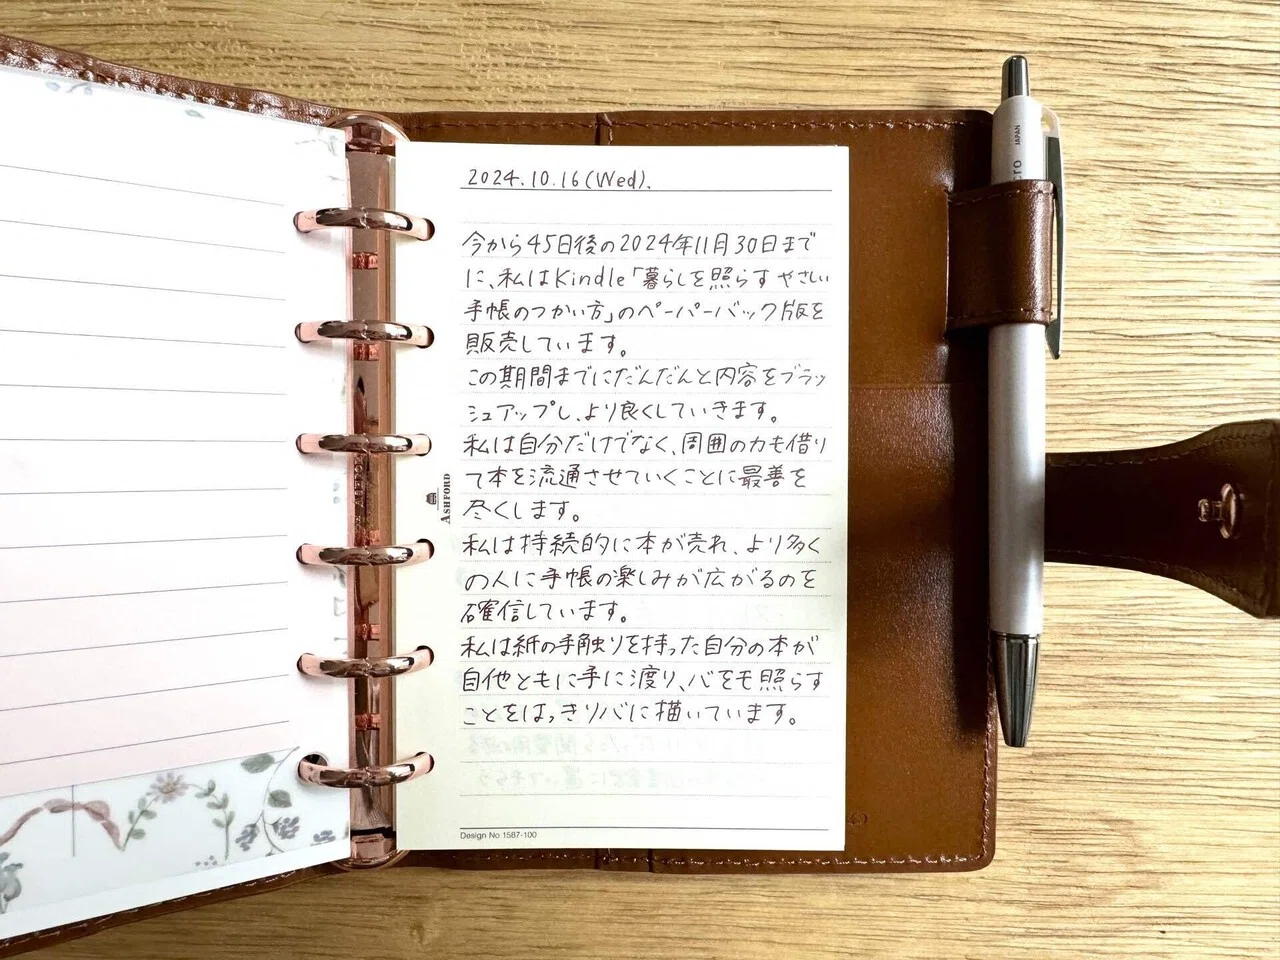 2024.10.16(Wed).
今から45日後の2024年11月30日まで
に、私はKindle「暮らしを照らすやさしい
手帳のつかい方」のペーパーバック版を
販売しています。
この期間までにだんだんと内容をブラッ
シュアップし、より良くしていきます。
私は自分だけでなく、周囲の力も借り
て本を流通させていくことに最善を
尽くします。
私は持続的に本が売れ、より多く
の人に手帳の楽しみが広がるのを
確信しています。
私は紙の手触りを持った自分の本が
自他ともに手に渡り、心をも照らす
ことをはっきり心に描いています。
Design No 1587-100
ASHFORD
JAPAN